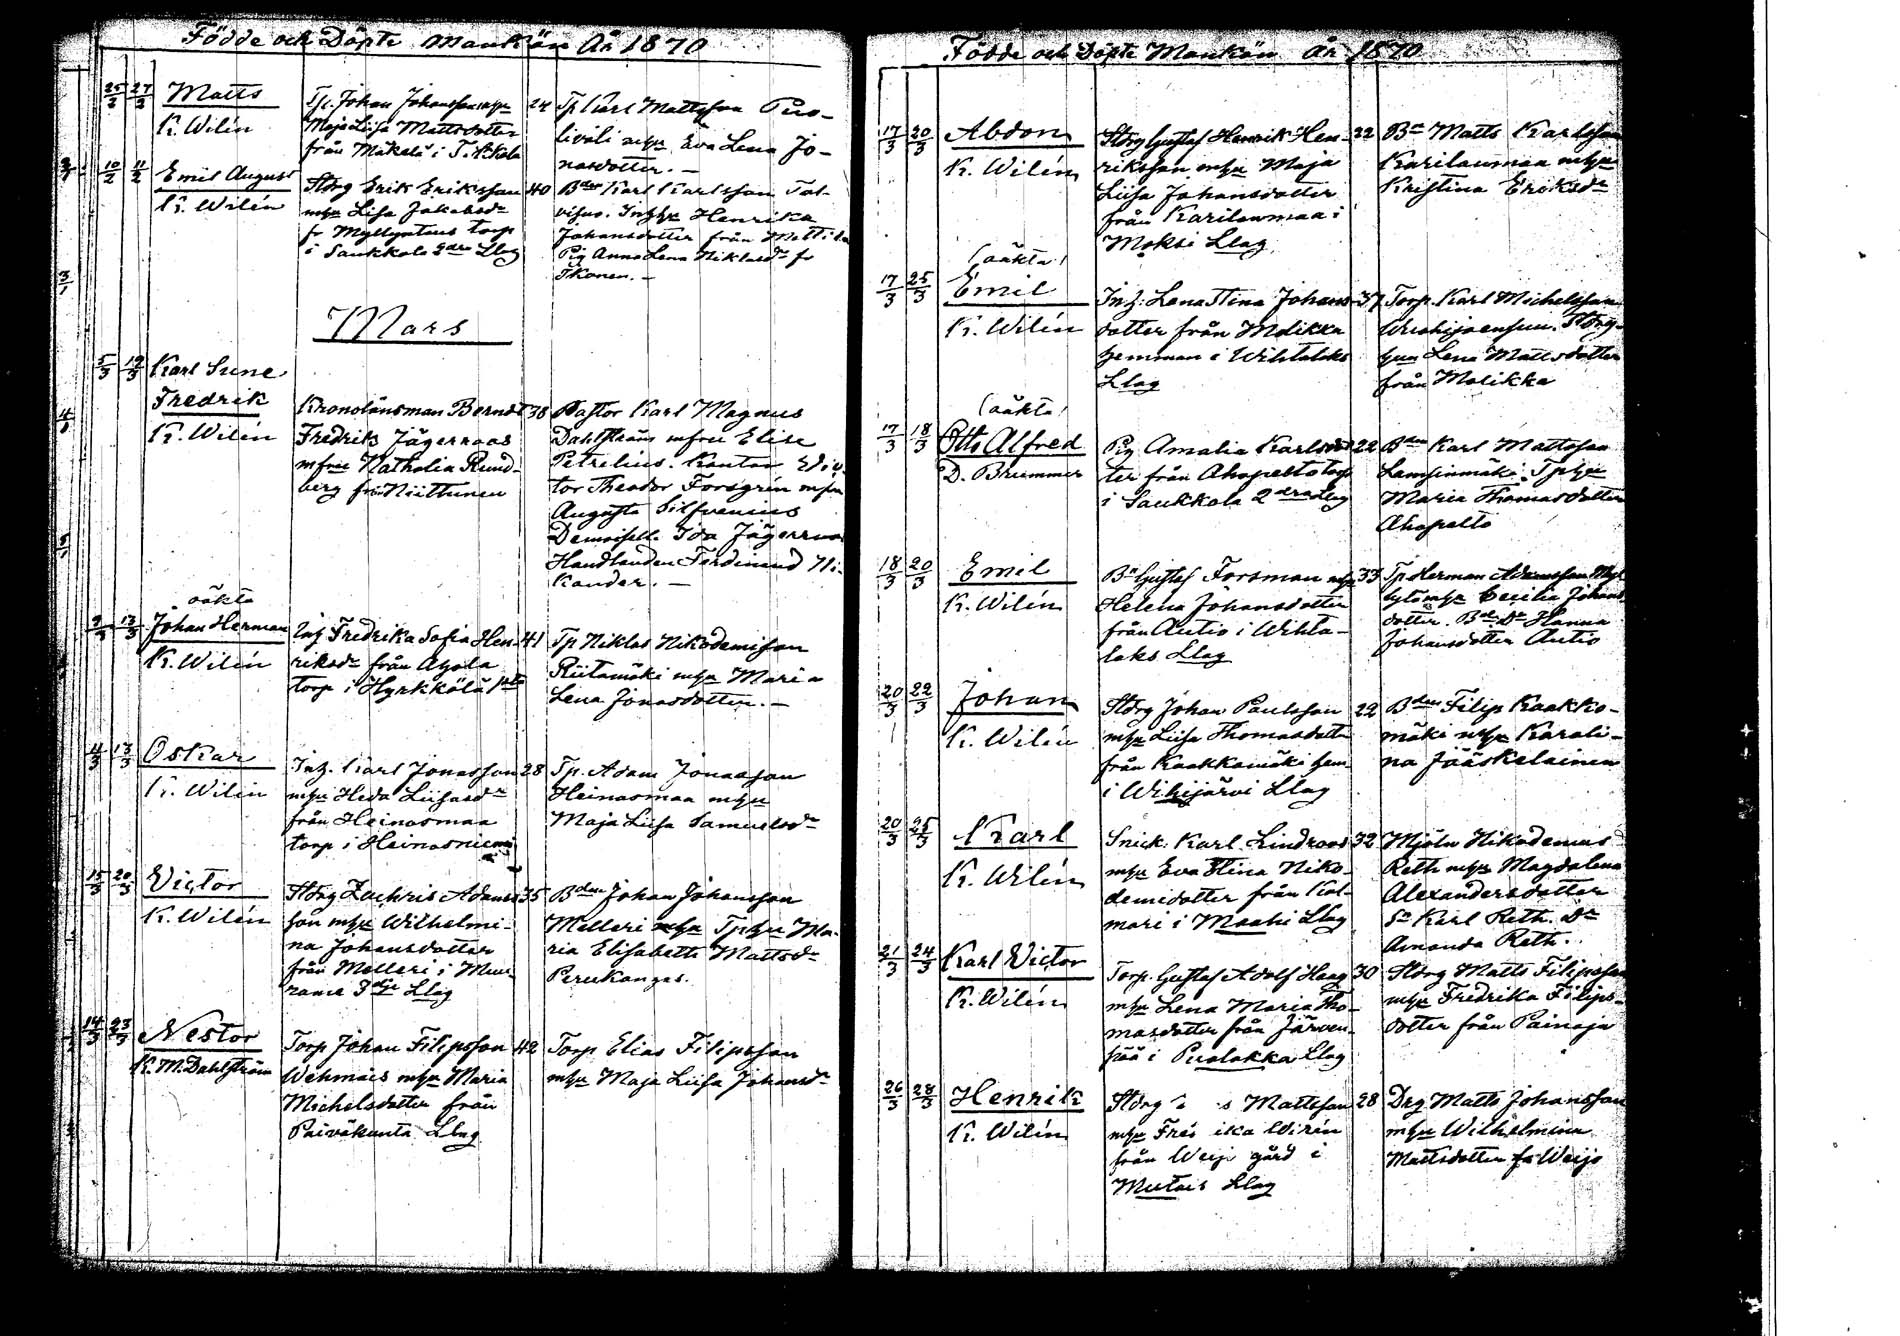 Födde och Döpte Mankön År 1870
25/2 27/2 Matts
K. Wilén
Tp. Johan Johansson mhu 24
Maja Liisa Mattsdotter
från Mäkelä i
Tp Karl Mattsson
mhu Eva Lena Jo-
nasdotter. —
10/2 11/2 Emil August
K. Wilén
Stdrg Erik Eriksson 40
mhu Lisa Jakobsdr
fr Myllyntaus torp
i Saukkola 2dra Llag
Bden Karl Karlsson Tal-
visuo. Inhhu Henrika
Johansdotter från Mattila
Pig Anna Lena Niklasdr fr
Ikonen. —
Mars
5/3 19/3 Karl Sune
Fredrik
K. Wilén
Kronolänsman Berndt 38
Fredrik Jägerroos
mfru Nathalia Rund-
berg från Niittunen
Pastor Karl Magnus
Dahlström mfru Elise
Petrelius. Kantor Edvi-
tor Theodor Forsgrén mfru
Augusta Silfvenius
Demoiselle Ida Jägerroos
Handlanden Ferdinand Ni-
kander. —
oäkta
9/3 13/3 Johan Herman
K. Wilén
Inh Fredrika Sofia Hen- 41
riksdr från Ahola
torp i Hyrkkölä 1sta
Tp Niklas Nikodemisson
Riitamäki mhu Maria
Lena Jonasdotter. —
4/3 13/3 Oskar
K. Wilén
Inh. Karl Jonasson 28
mhu Heda Liisasdr
från Heinasmaa
torp i Heinasniemi
Tp. Adam Jonasson
Heinasmaa mhu
Maja Liisa Samuelsdr
15/3 20/3 Victor
K. Wilén
Stdrg Zachris Adams- 35
son mhu Wilhelmi-
na Johansdotter
från Melleri i
3dje Llag
Bden Johan Johansson
Melleri mhu Tphu Ma-
ria Elisabeth Mattsdr
Perukangas.
14/3 23/3 Nestor
K. M. Dahlström
Torp Johan Filipsson 42
Wehmais mhu Maria
Michelsdotter från
Päiväkunta Llag
Torp Elias Filipsson
mhu Maja Liisa Johansdr
Födde och Döpte Mankön År 1870
17/3 20/3 Abdon
K. Wilén
Stdrg Gustaf Henrik Hen- 22
riksson mhu Maja
Liisa Johansdotter
från Karilanmaa i
Moksi Llag
Bn Matts Karlsson
Karilanmaa mhu
Kristina Eriksdr
(oäkta)
17/3 25/3 Emil
K. Wilén
Inh: Lena Stina Johans- 37
dotter från Molikka
hemman i Wihtalaks
Llag
Torp. Karl Michelsson
Wuohijoensuu. Stdrg-
hun Lena Mattsdotter
från Molikka
(oäkta)
17/3 18/3 Otto Alfred
D. Brummer
Pig Amalia Karlsdot- 22
ter från Ahopelto torp
i Saukkola 2dra Llag
Bden Karl Mattsson
Lamsinmäki. Tphu
Maria Thomasdotter
Ahopelto
18/3 20/3 Emil
K. Wilén
Bn Gustaf Forsman mhu 33
Helena Johansdotter
från Autio i Wihta-
laks Llag
Tp Herman Adamsson
mhu Cecilia Johans
dotter. Bde Dr Hanna
Johansdotter Autio
20/3 22/3 Johan
K. Wilén
Stdrg Johan Paulsson 22
mhu Liisa Thomasdotter
från Kaakkomäki hem.
i Wihijärvi Llag
Bden Filip Kaakko-
mäki mhu Karoli-
na Jääskelainen
20/3 25/3 Karl
K. Wilén
Snick. Karl Lindroos 32
mhu Eva Stina Niko-
demidotter från Kat-
mari i Maahi Llag
Mjöln Nikodemus
Reth mhu Magdalena
Alexandersdotter
Sn Karl Reth. Dr
Amanda Reth.
21/3 24/3 Karl Victor
K. Wilén
Torp. Gustaf Adolf Haag 30
mhu Lena Maria Tho-
masdotter från Järven-
pää i Puolakka Llag
Stdrg Matts Filipsson
mhu Fredrika Filips-
dotter från Painaja
26/3 28/3 Henrik
K. Wilén
Stdrg Mattsson 28
mhu Wirén
från Weijo gård i
Metais Llag
Drg Matts Johansson
mhu Wilhelmina
Mattsdotter fr Weijo